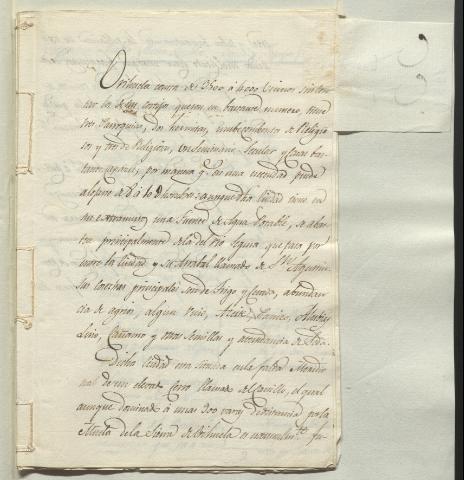 Orihuela consta de 3500 á 4000 Vecinos sin con-
tar la de su que son en bastante numero, tiene
tres Parroquias, dos hermitas, nueve conventos de Religio
sos y tres de Religiosas, un Seminario y casas bas-
tante capaces, por manera q.e en una necesidad puede
alojarse de 8 á 10 hombres: aunque dha Ciudad tiene en
su extramuros una fuente de Agua Potable, se abas-
tece principalmente de la del Rio Segura, que pasa por
entre la Ciudad y su Arrabal llamado de S.n Agustin.
Sus cosechas principales son de Trigo y Cevada, abundan-
cia de agrios, algun Maiz, Aceite,
Lino, Cañamo y otras Semillas y abundancia de Seda.
Dicha Ciudad esta situada en la falda Meridio
nal de un elevado Cerro llamado del Castillo, el qual
aunque dominado á unas 300 varas de distancia por la
Muela de la Sierra de Orihuela es